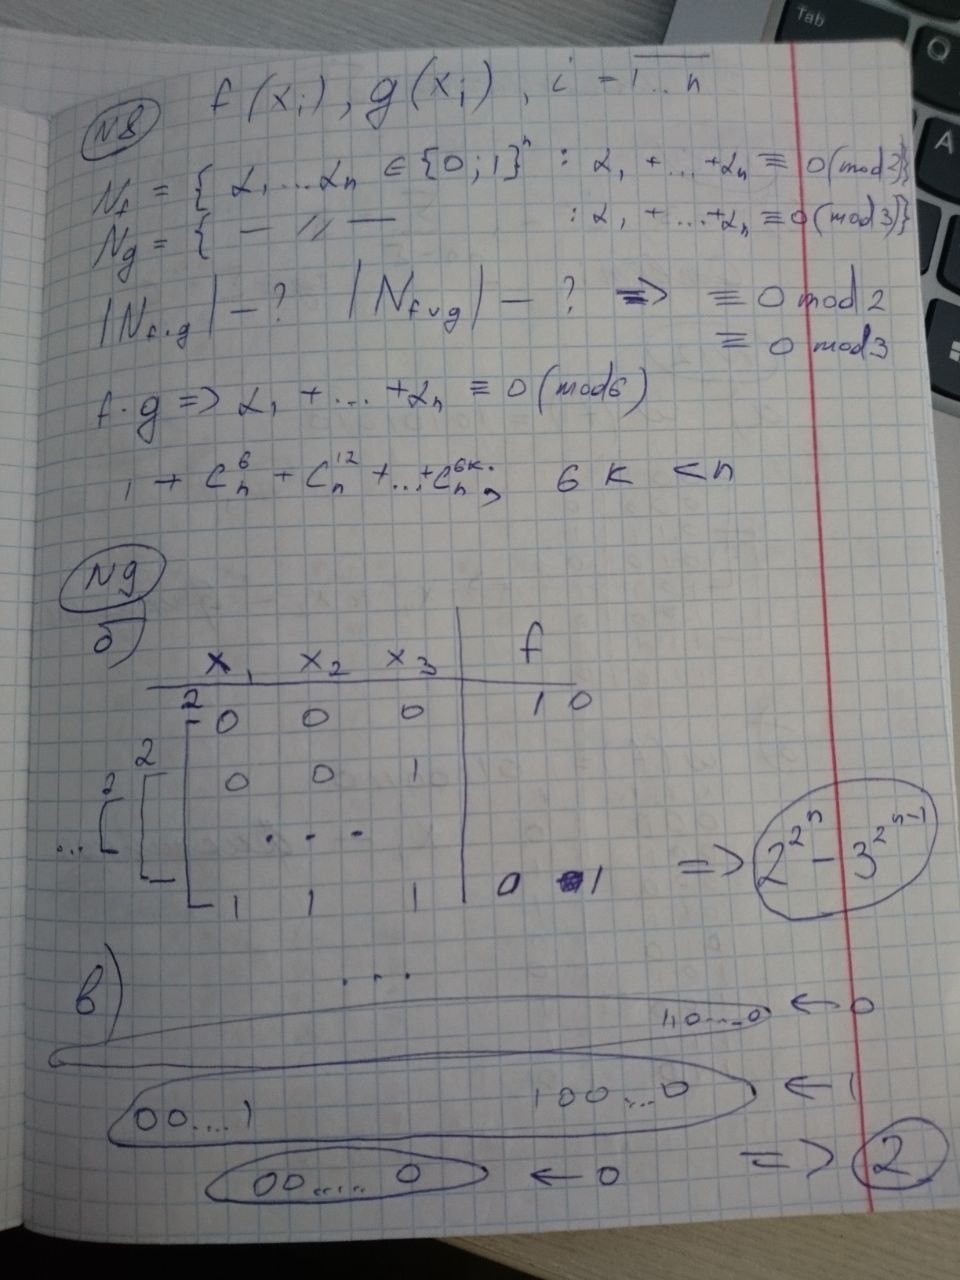 N8 f(xᵢ), g(xᵢ), i = 1...n
N_f = { α₁...αₙ ∈ {0;1}ⁿ : α₁ + ... + αₙ ≡ 0 (mod 2)}
N_g = { — // — : α₁ + ... + αₙ ≡ 0 (mod 3)}
|N_{f·g}| — ? |N_{f∨g}| — ? => ≡ 0 mod 2
≡ 0 mod 3
f·g => α₁ + ... + αₙ ≡ 0 (mod 6)
1 + C_n^6 + C_n^12 + ... + C_n^{6k}; 6k < n
N9
б)
x₁ x₂ x₃ f
2 0 0 0 1 0
2 0 0 1
2
... · · ·
1 1 1 0 1 => 2^{2^n} - 3^{2^{n-1}}
в) ...
110...0 ← 0
00...1 100...0 ← 1
00..... 0 ← 0 => 2
Tab
Q
A